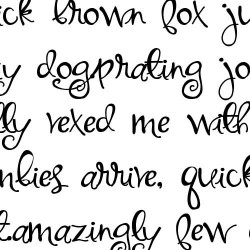 ick brown fox ju
y dog.prating jo
lly vexed me with
mbies arrive, quick
t.amazingly few d